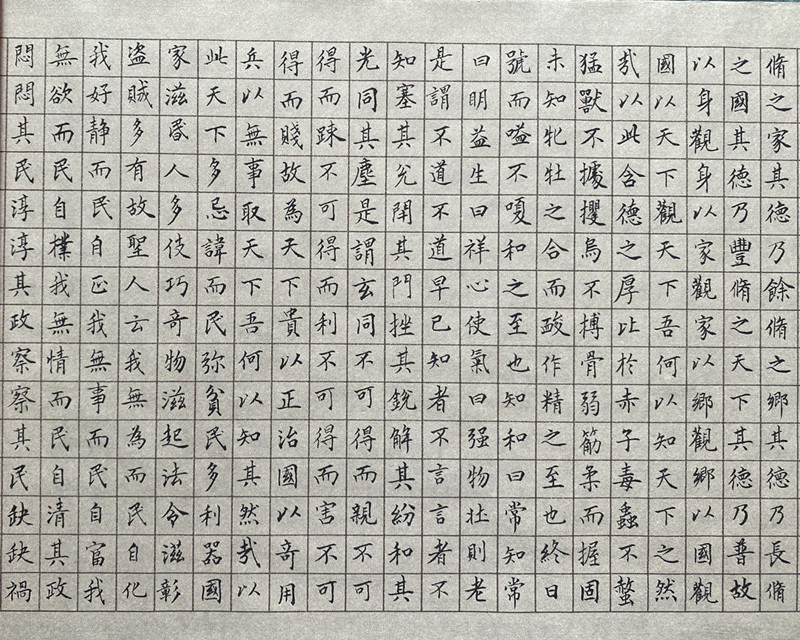 脩之家其德乃餘脩之鄉其德乃長脩
之國其德乃豐脩之天下其德乃普故
以身觀身以家觀家以鄉觀鄉以國觀
國以天下觀天下吾何以知天下之然
哉以此含德之厚比於赤子毒蟲不螫
猛獸不據攫鳥不搏骨弱筋柔而握固
未知牝牡之合而酸作精之至也終日
號而嗌不嗄和之至也知和曰常知常
曰明益生曰祥心使氣曰强物壯則老
是謂不道不道早已知者不言言者不
知塞其兌閉其門挫其銳解其紛和其
光同其塵是謂玄同不可得而親不可
得而踈不可得而利不可得而害不可
得而賤故為天下貴以正治國以奇用
兵以無事取天下吾何以知其然哉以
此天下多忌諱而民弥貧民多利器國
家滋昬人多伎巧奇物滋起法令滋彰
盗賊多有故聖人云我無為而民自化
我好静而民自正我無事而民自富我
無欲而民自樸我無情而民自清其政
悶悶其民淳淳其政察察其民缺缺禍